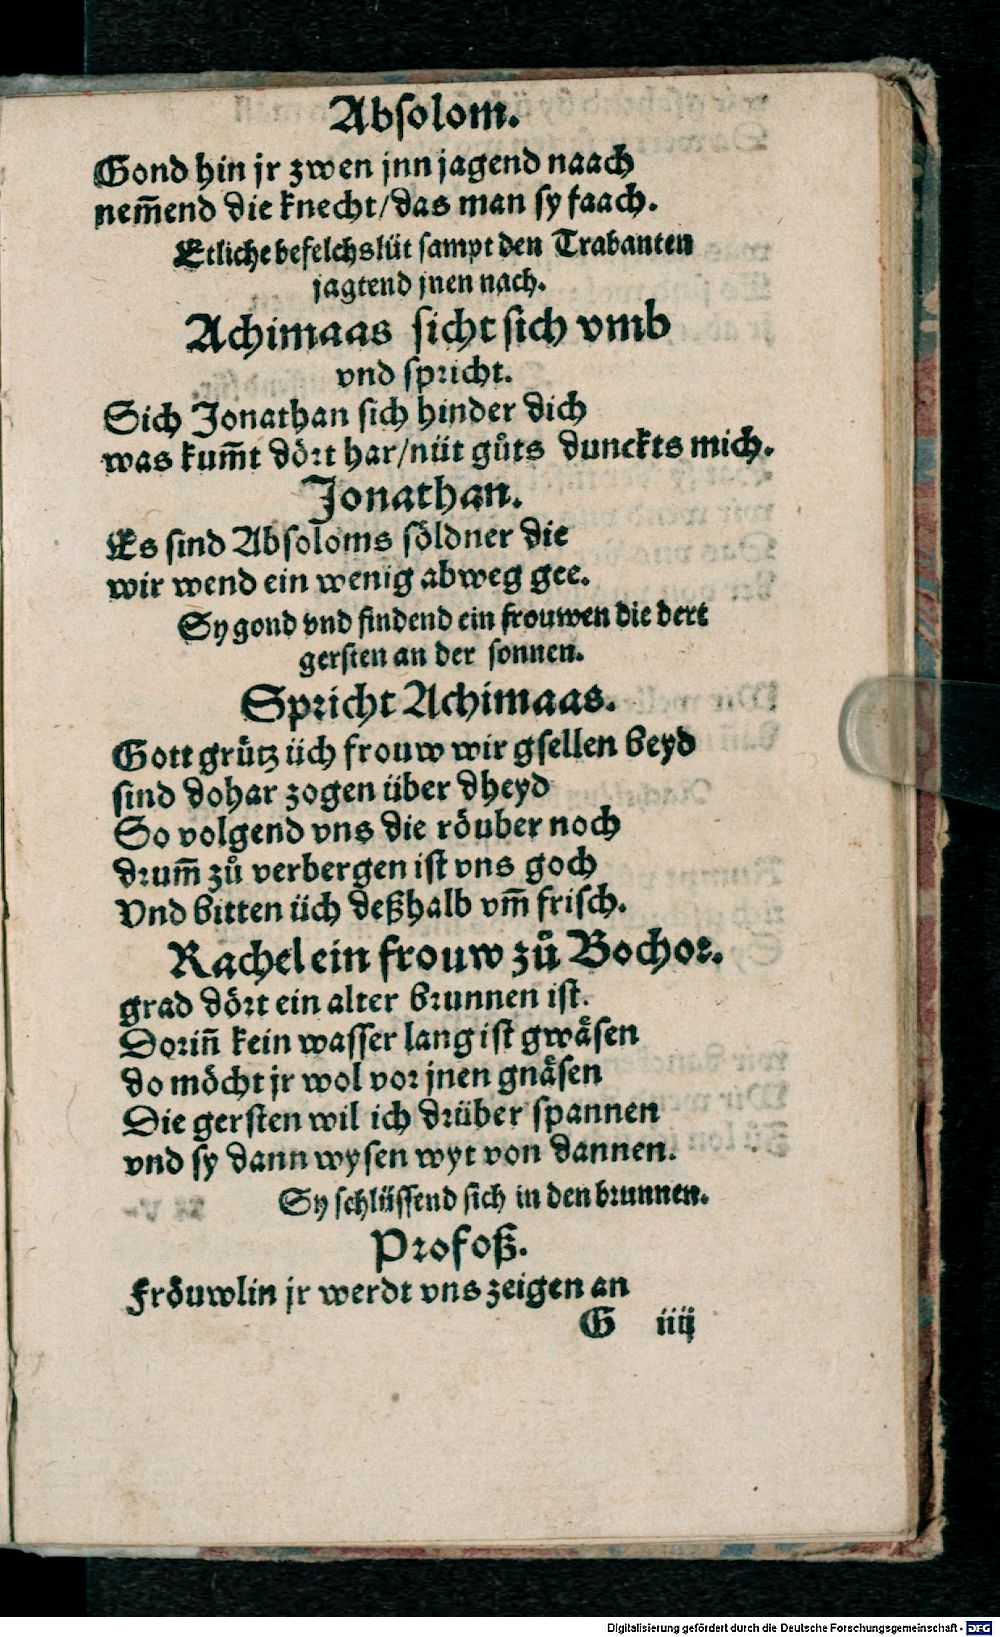 Absolom.
Gond hin jr zwen jnn jagend naach
nem̄end die knecht/das man sy faach.
Etliche befelchslüt sampt den Trabanten
jagtend jnen nach.
Achimaas sicht sich vmb
vnd spricht.
Sich Jonathan sich hinder dich
was kum̄t dört har/nüt gůts dunckts mich.
Jonathan.
Es sind Absoloms söldner die
wir wend ein wenig abweg gee.
Sy gond vnd findend ein frouwen die dert
gersten an der sonnen.
Spricht Achimaas.
Gott grůtz üch frouw wir gsellen beyd
sind dohar zogen über dheyd
So volgend vns die röuber noch
drum̄ zů verbergen ist vns goch
Vnd bitten üch deßhalb vm̄ frisch.
Rachel ein frouw zů Bochor.
grad dört ein alter brunnen ist.
Dorin̄ kein wasser lang ist gwåsen
do möcht jr wol vor jnen gnåsen
Die gersten wil ich drüber spannen
vnd sy dann wysen wyt von dannen.
Sy schlüssend sich in den brunnen.
Profoß.
Fröuwlin jr werdt vns zeigen an
G iiij
Digitalisierung gefördert durch die Deutsche Forschungsgemeinschaft - DFG